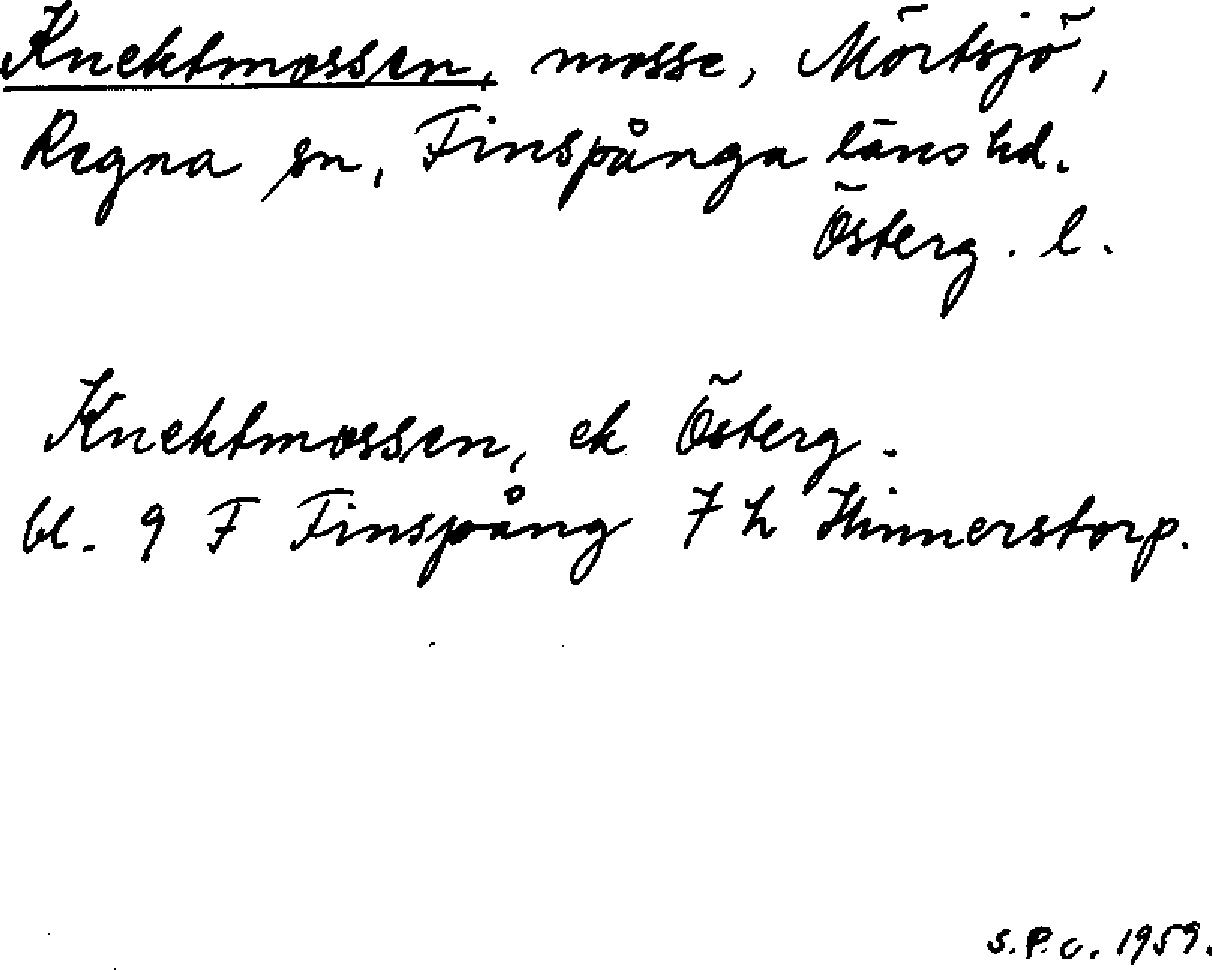 Knektmossen, mosse, Mörtsjö,
Regna sn, Finspånga läns hd.
Österg. l.
Knektmossen, ek Österg.
bl. 9 F Finspång 7 h Hinnerstorp.
S.P.C. 1959.